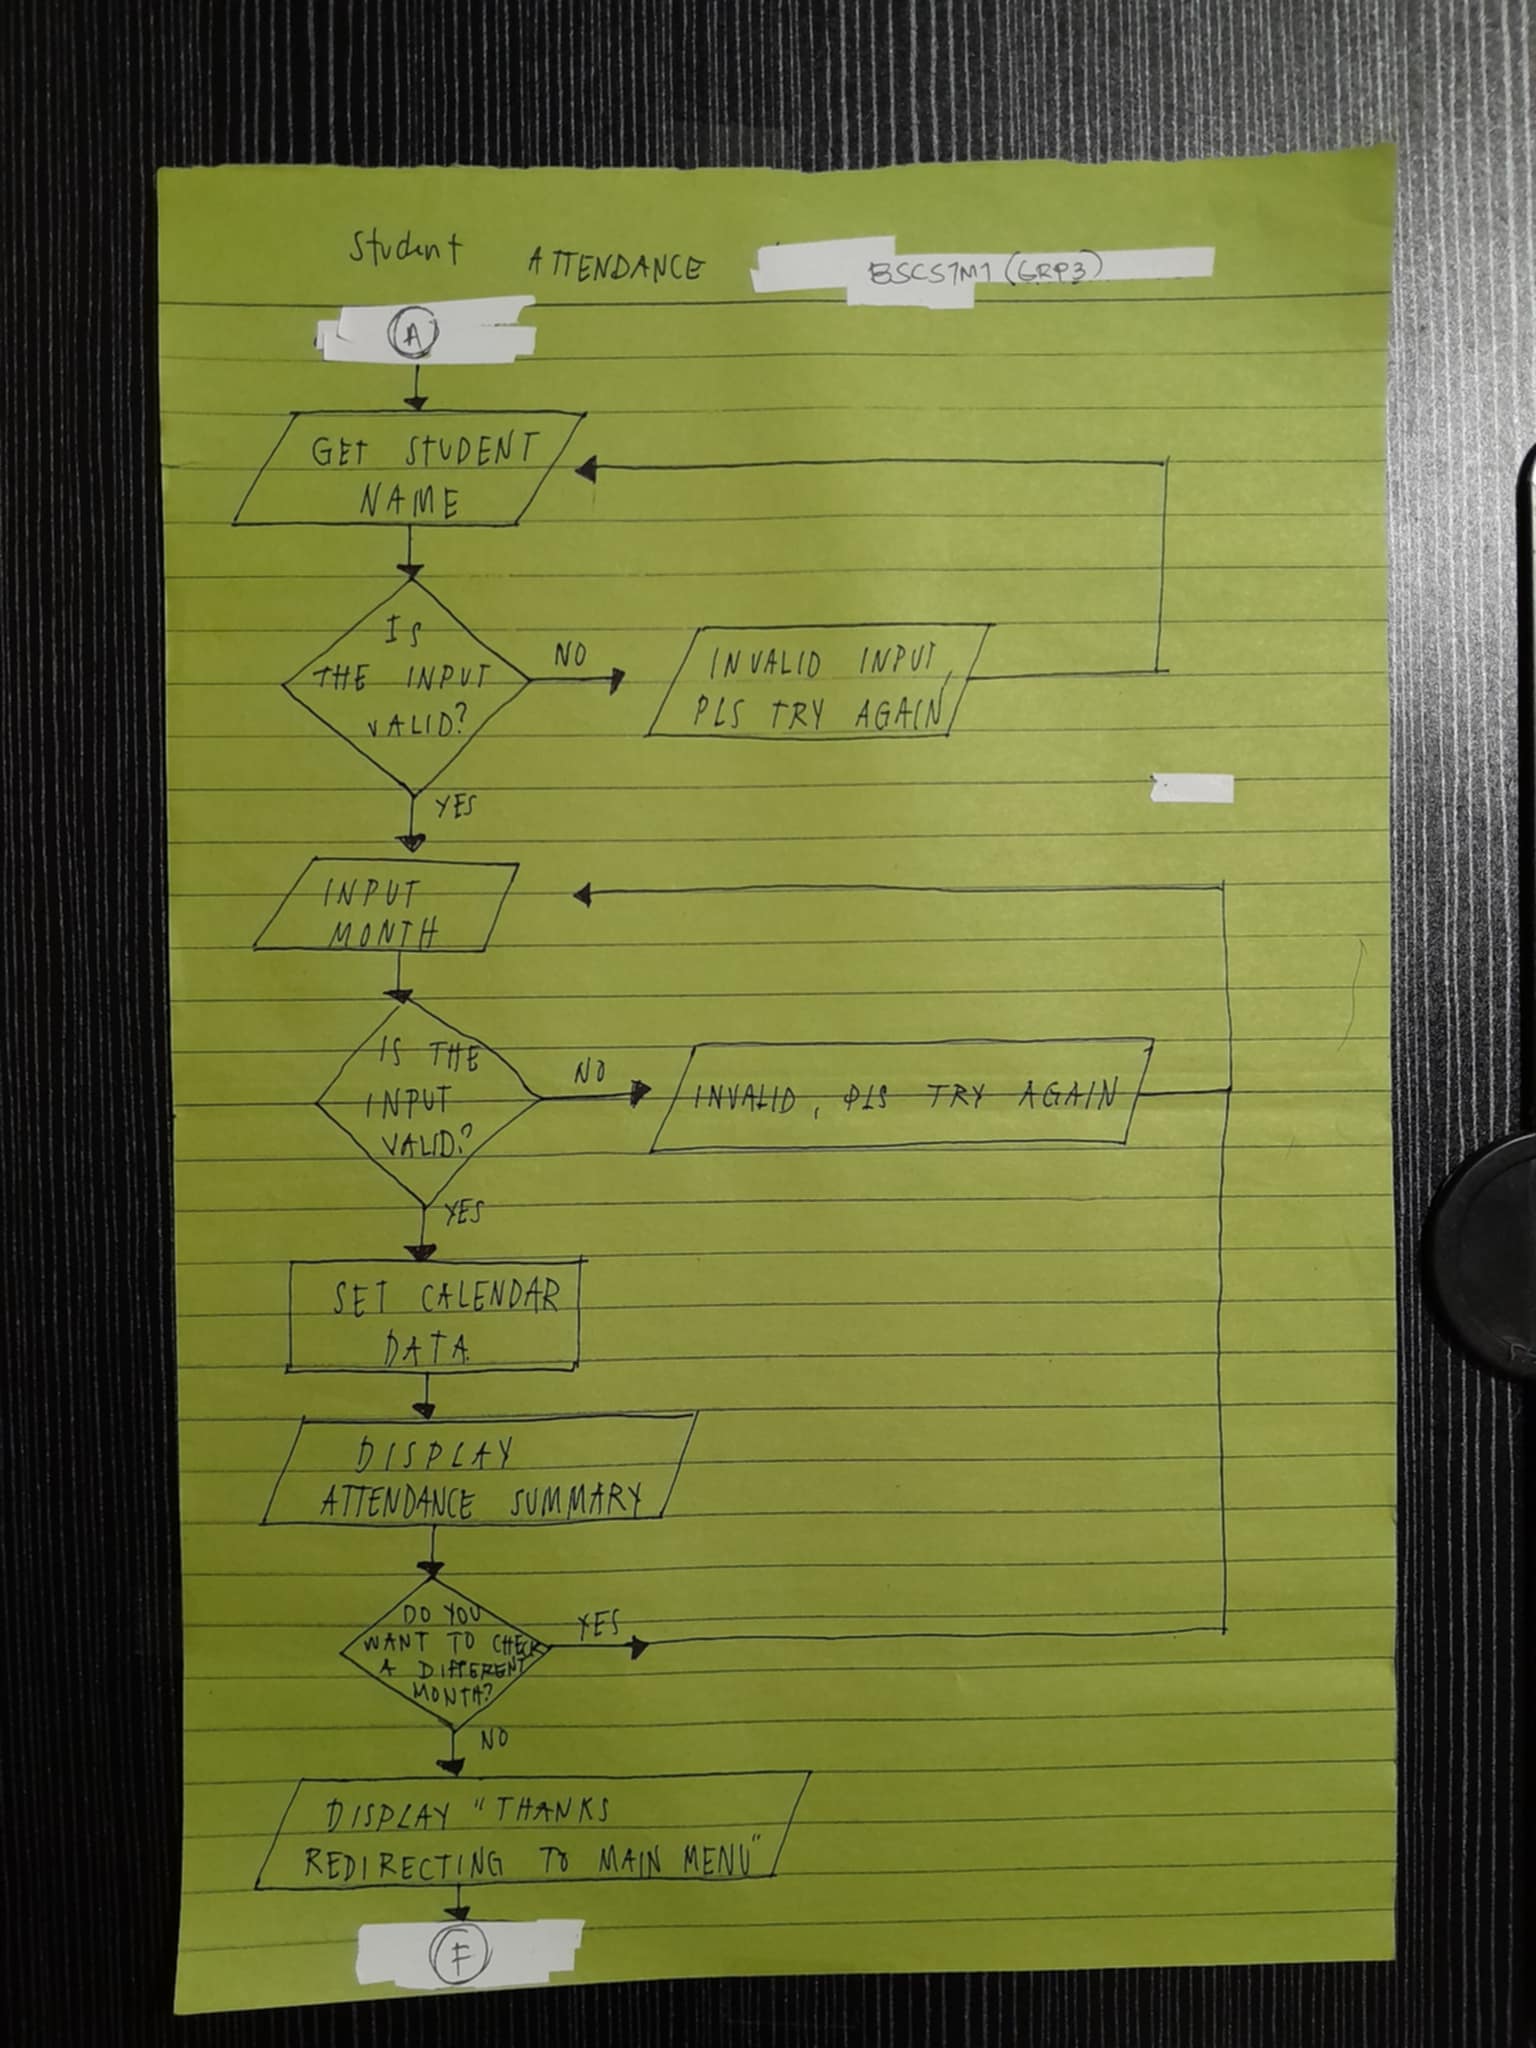 Student ATTENDANCE BSCS1M1 (GRP3)
A
GET STUDENT
NAME
IS
THE INPUT
VALID?
NO
INVALID INPUT,
PLS TRY AGAIN
YES
INPUT
MONTH
IS THE
INPUT
VALID?
NO
INVALID, PLS TRY AGAIN
YES
SET CALENDAR
DATA
DISPLAY
ATTENDANCE SUMMARY
DO YOU
WANT TO CHECK
A DIFFERENT
MONTH?
YES
NO
DISPLAY "THANKS
REDIRECTING TO MAIN MENU"
F